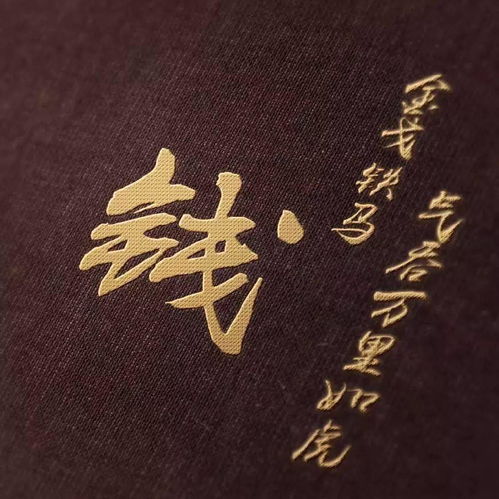 钱
金戈铁马
气吞万里如虎